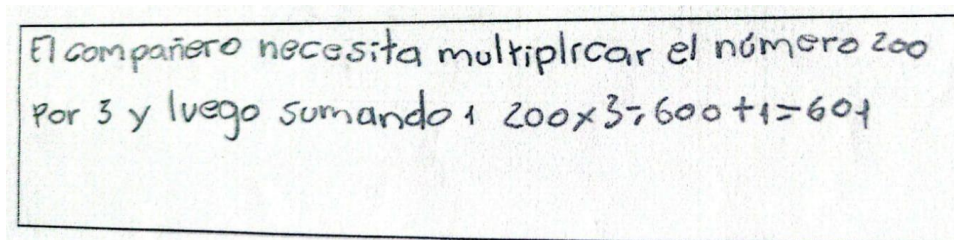 El compañero necesita multiplicar el número 200
Por 3 y luego sumando 1 200x3=600+1=601